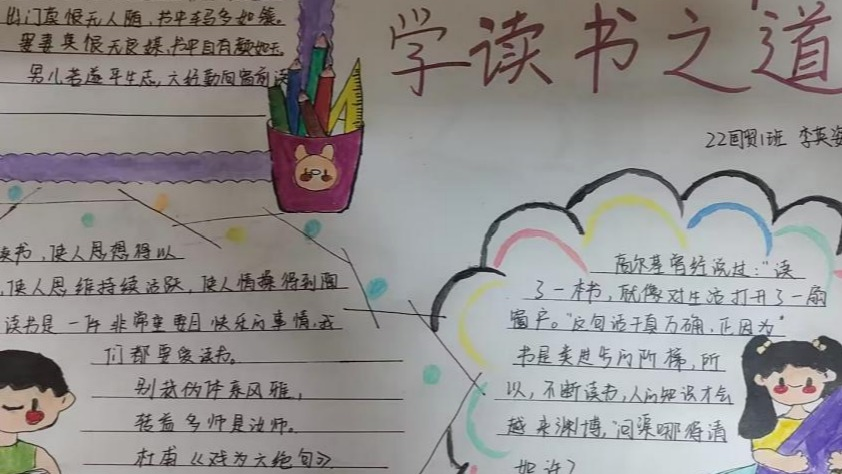 学读书之道
22国贸1班 李英姿
出门莫恨无人随,书中车马多如簇。
娶妻莫恨无良媒,书中自有颜如玉。
男儿若遂平生志,六经勤向窗前读
读书,使人思想得以
,使人思维持续活跃,使人情操得到陶
读书是一件非常重要且快乐的事情,我
们都要爱读书。
别裁伪体亲风雅,
转益多师是汝师。
杜甫《戏为六绝句》
高尔基曾经说过:“读
了一本书,就像对生活打开了一扇
窗户。”这句话千真万确,正因为
书是类进步的阶梯,所
以,不断读书,人的知识才会
越来渊博,问渠哪得清
如许?